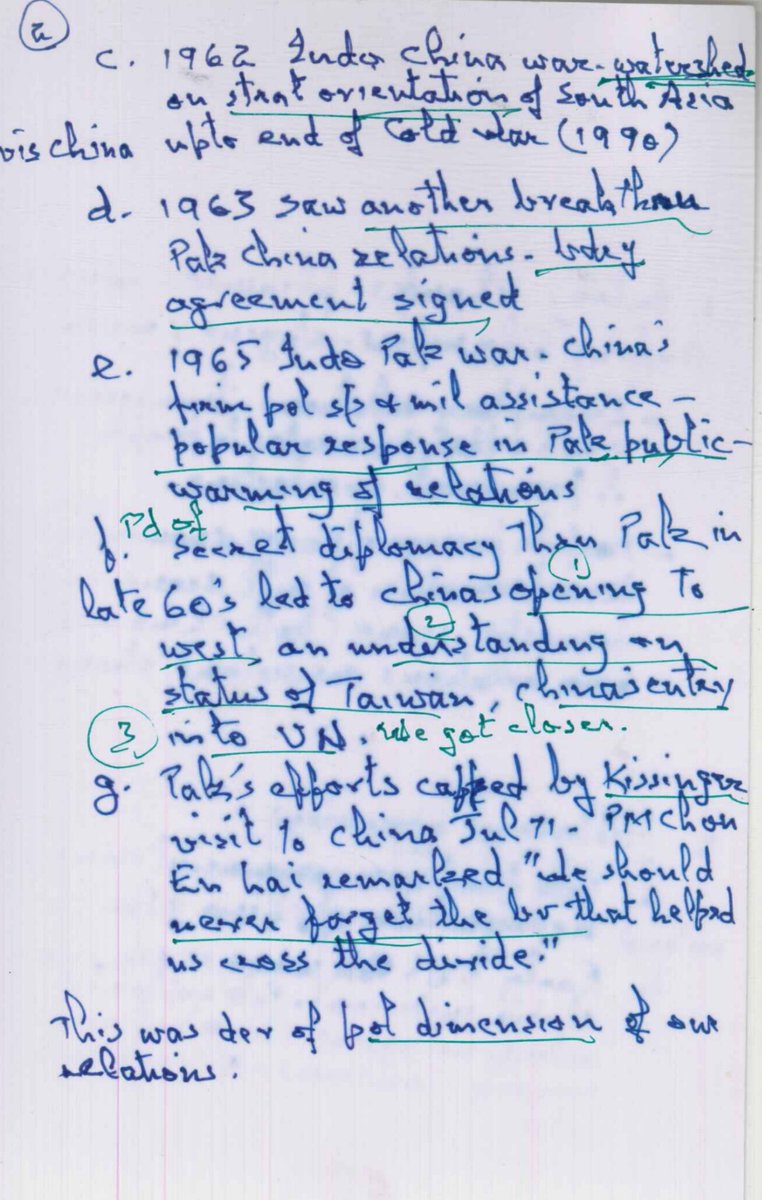 c. 1962 Indo China war - watershed
on strat orientation of South Asia
vis china upto end of Cold War (1990)
d. 1963 saw another breakthru
Pak China relations - bdry
agreement signed
e. 1965 Indo Pak war - China's
firm pol sp & mil assistance -
popular response in Pak public -
warming of relations
f. Pd of secret diplomacy Thru Pak in
late 60's led to China's opening To (1)
west, an understanding on (2)
status of Taiwan, China's entry
(3) into UN. We got closer.
g. Pak's efforts capped by Kissinger
visit to China Jul 71 - PM Chou
En hai remarked "We should
never forget the br that helped
us cross the divide."
This was dev of pol dimension of our
relations.